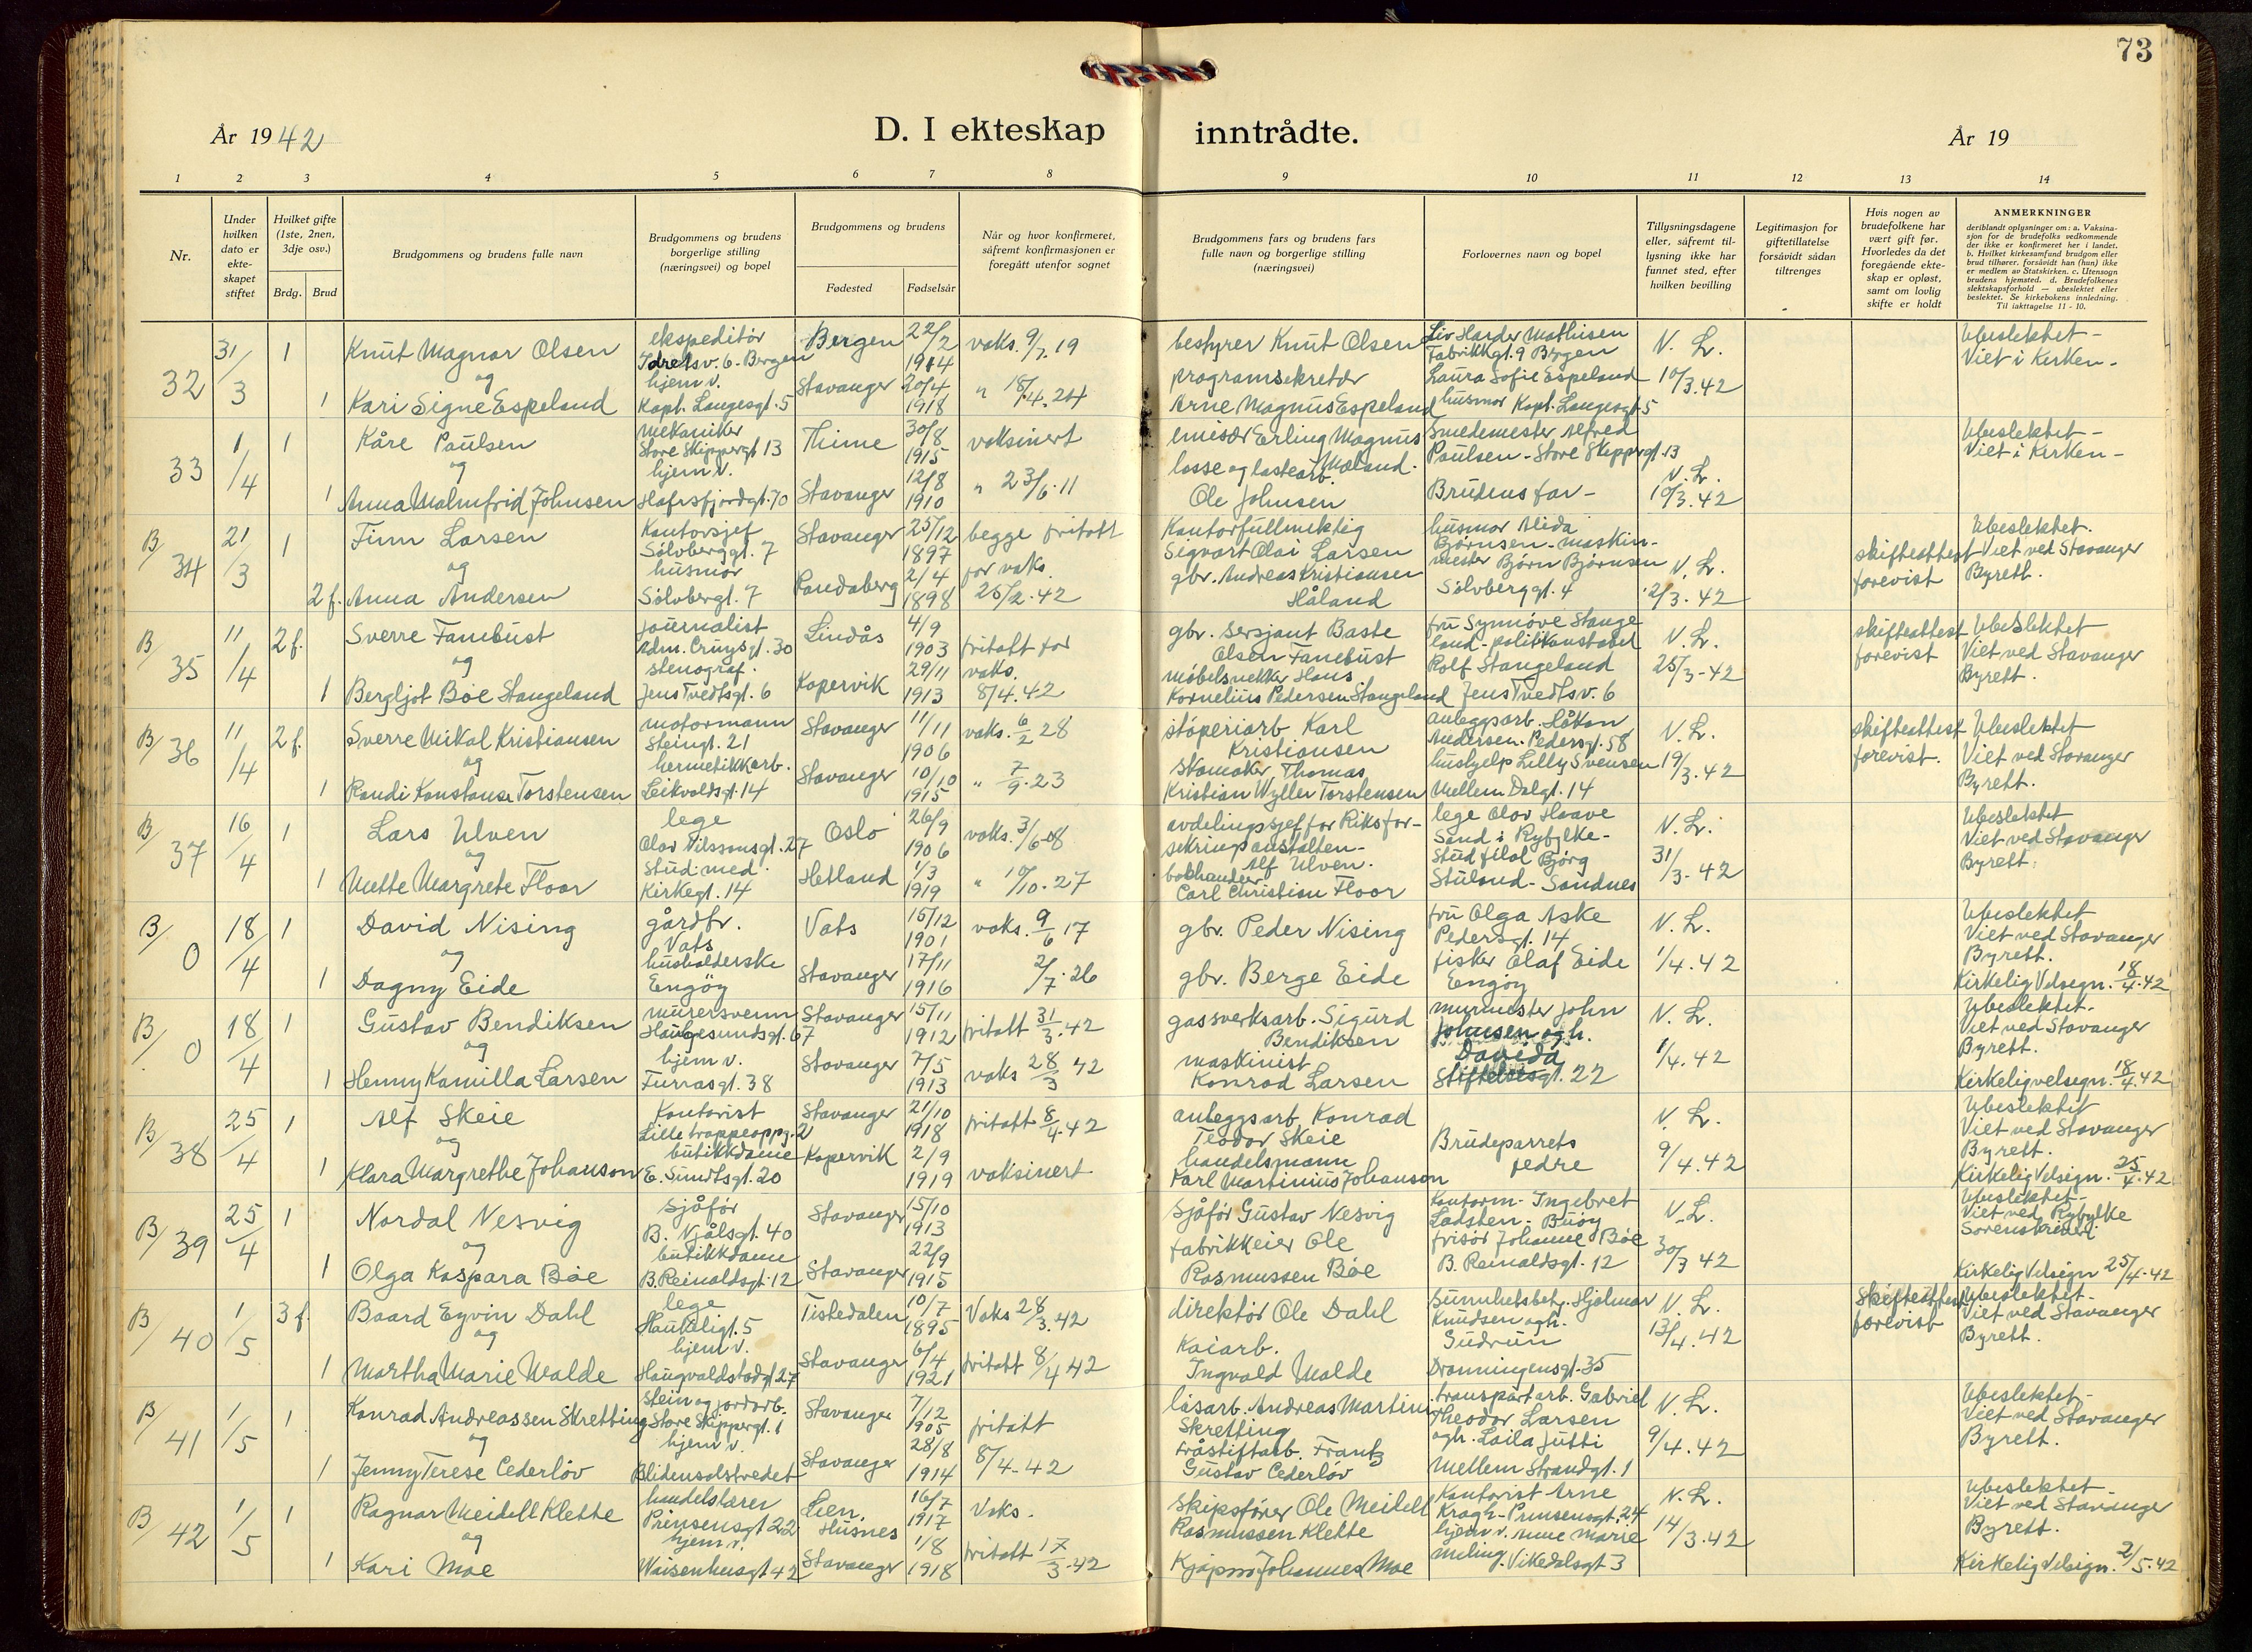 73
År 1942
D. I ekteskap inntrådte.
År 19
1 2 3 4 5 6 7 8 9 10 11 12 13 14
Nr.
Under hvilken dato er ekteskapet stiftet
Hvilket gifte (1ste, 2nen, 3dje osv.)
Brdg. Brud
Brudgommens og brudens fulle navn
Brudgommens og brudens borgerlige stilling (næringsvei) og bopel
Brudgommens og brudens
Fødested Fødselsår
Når og hvor konfirmeret, såfremt konfirmasjonen er foregått utenfor sognet
Brudgommens fars og brudens fars fulle navn og borgerlige stilling (næringsvei)
Forlovernes navn og bopel
Tillysningsdagene eller, såfremt tillysning ikke har funnet sted, efter hvilken bevilling
Legitimasjon for giftetillatelse forsåvidt sådan tiltrenges
Hvis nogen av brudefolkene har vært gift før. Hvorledes da det foregående ekteskap er opløst, samt om lovlig skifte er holdt
ANMERKNINGER
deriblandt oplysninger om: a. Vaksinasjon for de brudefolks vedkommende der ikke er konfirmeret her i landet. b. Hvilket kirkesamfund brudgom eller brud tilhører, forsåvidt han (hun) ikke er medlem av Statskirken. c. Utensogn brudens hjemsted. d. Brudefolkenes slektskapsforhold — ubeslektet eller beslektet. Se kirkebokens innledning. Til iakttagelse 11 - 10.
32 31/3 1 Knut Magnar Olsen
ekspeditør Idretsv. 6. Bergen
Bergen 22/2 1914 vaks. 9/7 19
bestyrer Knut Olsen
Liv Harder Mathisen Fabrikkgt. 9 Bergen
N. L. 10/3.42
Ubeslektet - Viet i Kirken -
og
1 Kari Signe Espeland
hjem v. Kapt. Langesgt. 5
Stavanger 20/4 1918 " 18/4.24
programsekretær Arne Magnus Espeland
Laura Sofie Espeland husmor Kapt. Langesgt 5
33 1/4 1 Kåre Paulsen
mekaniker Store Skippergt 13
Thime 30/8 1915 vaksinert
emisær Erling Magnus Mæland.
Smedemester Alfred Paulsen - Store Skippergt. 13
N. L. 10/3.42
Ubeslektet - Viet i Kirken -
og
1 Anna Malmfrid Johnsen
hjem v. Hafrsfjordgt. 70
Stavanger 12/8 1910 " 23/6.11
losse og lastearb. Ole Johnsen
Brudens far -
B/34 21/3 1 Finn Larsen
Kontorsjef Sølvberggt. 7
Stavanger 25/12 1897 begge fritatt for vaks. 26/2.42
Kontorfullmektig Segvart Olai Larsen
husmor Alida Bjørnsen - maskinmester Bjørn Bjørnsen Sølvberggt. 4
N. L. 2/3.42
skifteattest forevist
Ubeslektet. Viet ved Stavanger Byrett.
og
2 f. Anna Andersen
husmor Sølvbergt. 7
Randaberg 2/4 1898
gbr. Andreas Kristiansen Håland
B/35 11/4 2 f. Sverre Fanebust
journalist Adm. Cruysgt. 30
Lindås 4/9 1903 fritatt for vaks. 8/4.42
gbr. sersjant Baste Olsen Fanebust
fru Synnøve Stangeland - politikonstabel Rolf Stangeland Jens Tvedtsv. 6
N. L. 25/3-42
skifteattest forevist
Ubeslektet Viet ved Stavanger Byrett.
og
1 Bergljot Bøe Stangeland
stenograf. Jens Tvedtsgt. 6
Kopervik 29/11 1913
møbelsnekker Hans Kornelius Pedersen Stangeland
B/36 11/4 2 f. Sverre Mikal Kristiansen
motormann Steingt. 21
Stavanger 11/11 1906 vaks. 6/2 28
støperiarb Karl Kristiansen
anleggsarb. Håkon Andersen. Pedersgt. 58
N. L. 19/3.42
skifteattest forevist.
Ubeslektet Viet ved Stavanger Byrett.
og
1 Randi Konstanse Torstensen
hermetikkarb. Leikvoldsgt. 14
Stavanger 10/10 1915 " 7/9.23
Skomaker Thomas Kristian Wyller Torstensen
hushjelp Lilly Svensen Mellem Dalgt. 14
B/37 16/4 1 Lars Ulven
lege Olav Nilssonsgt. 27
Oslo 26/9 1906 vaks. 3/6-08
avdelingssjef for Riksforsikringsanstalten - Alf Ulven.
lege Olav Haave Sand i Ryfylke -
N. L. 31/3-42
Ubeslektet Viet ved Stavanger Byrett.
og
1 Mette Margrete Floor
Stud. med. Kirkegt. 14
Hetland 1/3 1919 " 10/10.27
bokhandler Carl Christian Floor
Stud filol Bjørg Stuland - Sandnes
B/0 18/4 1 David Nising
gårdbr. Vats
Vats 16/12 1901 vaks. 9/6 17
gbr. Peder Nising
fru Olga Aske Pedersgt. 14
N. L. 1/4.42
Ubeslektet Viet ved Stavanger Byrett. Kirkelig Velsegn. 18/4.42
og
1 Dagny Eide
husholderske Engøy
Stavanger 17/11 1916 2/7.26
gbr. Berge Eide
fisker Olaf Eide Engøy
B/0 18/4 1 Gustav Bendiksen
murersvenn Haugesundsgt. 67
Stavanger 15/11 1912 fritatt 31/3.42
gassverksarb. Sigurd Bendiksen
murmester John Johnsen og h. Davida Stiftelsesgt. 22
N. L. 1/4.42
Ubeslektet. Viet ved Stavanger Byrett. Kirkelig velsegn. 18/4.42
og
1 Henny Kamilla Larsen
hjem v. Furrasgt. 38
Stavanger 7/5 1913 vaks 28/3 42
maskinist Konrad Larsen
B/38 25/4 1 Alf Skeie
Kontorist Lille trappeoppg. 2
Stavanger 21/10 1918 fritatt 8/4.42
anleggsarb. Konrad Teodor Skeie
Brudeparrets fedre
N. L. 9/4.42
Ubeslektet Viet ved Stavanger Byrett. Kirkelig Velsign. 25/4.42
og
1 Klara Margrethe Johanson
butikkdame E. Sundtsgt. 20
Kopervik 2/9 1919 vaksinert
handelsmann Karl Martinius Johanson
B/39 25/4 1 Nordal Nesvig
Sjåfør B. Njålsgt. 40
Stavanger 15/10 1913
Sjåfør Gustav Nesvig
Kontorm. Ingebret Ladsten - Buøy
N. L. 30/3 42
Ubeslektet - Viet ved Ryfylke Sorenskriveri. Kirkelig Velsign 25/4.42
og
1 Olga Kaspara Bøe
butikkdame B. Reinaldsgt. 12
Stavanger 22/9 1915
fabrikkeier Ole Rasmussen Bøe
frisør Johanne Bøe B. Reinaldsgt. 12
B/40 1/5 3 f. Baard Eyvin Dahl
lege Haukeligt. 5
Tistedalen 10/7 1895 Vaks 28/3.42
direktør Ole Dahl
Sunnhetsbetj. Hjalmar Knudsen og h. Gudrun Dronningensgt. 35
N. L. 13/4.42
Skifteattest forevist
Ubeslektet - Viet ved Stavanger Byrett.
og
1 Martha Marie Malde
hjem v. Haugvaldstadgt 27
Stavanger 6/4 1921 fritatt 8/4 42
Kaiarb. Ingvald Malde
B/41 1/5 1 Konrad Andreassen Skretting
stein og jordarb. Store Skippergt. 1
Stavanger 7/12 1905 fritatt 8/4-42
låsarb. Andreas Martin Skretting
transportarb. Gabriel Theodor Larsen og h. Laila Jutti Mellem Strandgt. 1
N. L. 9/4.42
Ubeslektet - Viet ved Stavanger Byrett.
og
1 Jenny Terese Cederløv
hjem v. Blidensolstredet
Stavanger 28/8 1914
tråstiftarb. Frantz Gustav Cederløv
B/42 1/5 1 Ragnar Meidell Klette
handelslærer Prinsensgt 22
Lien, Husnes 16/7 1917 Vaks.
Skipsfører Ole Meidell Rasmussen Klette
Kontorist Arne Kragh - Prinsensgt. 24
N. L. 14/3.42
Ubeslektet - Viet ved Stavanger Byrett. Kirkelig Velsign. 2/5.42
og
1 Kari Moe
hjem v. Waisenhusgt 42
Stavanger 1/8 1918 fritatt 17/3.42
Kjøpm Johannes Moe
hjem v. Anne Marie Meling. Vikedalsgt 3